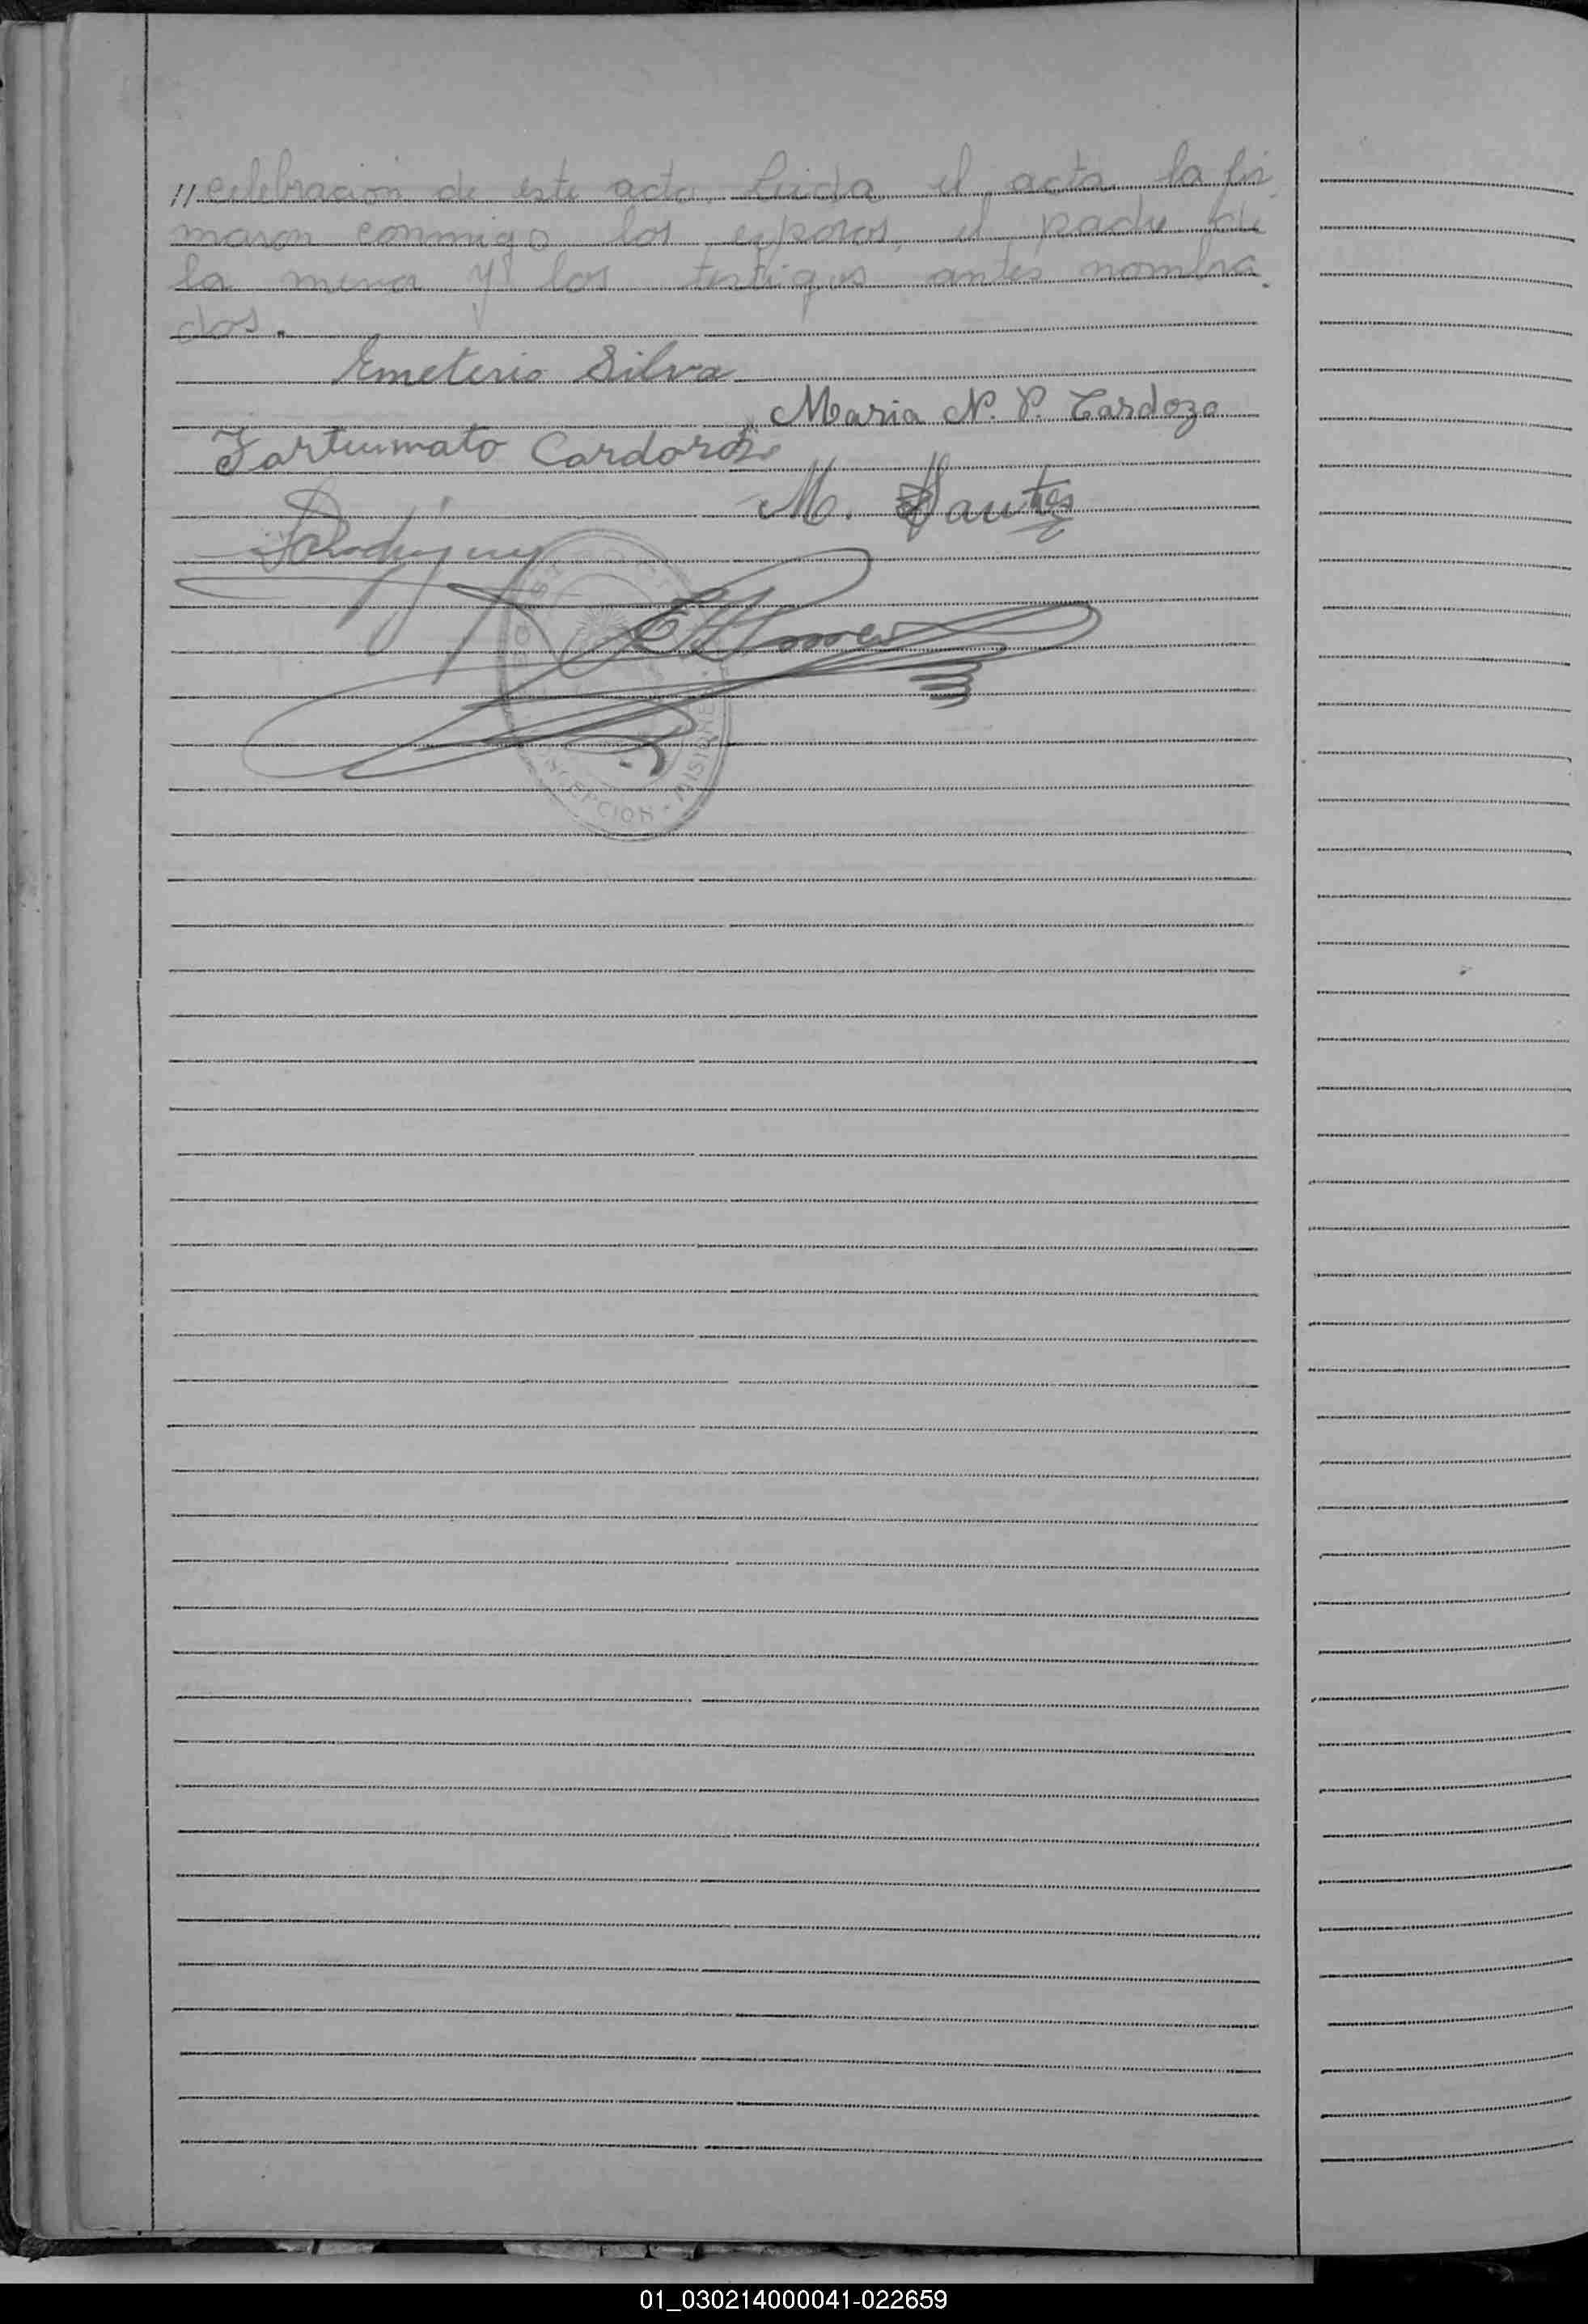 // celebración de este acto. Leida el acta la fir
maron conmigo los esposos, el padre de
la menor y los testigos antes nombra
dos.
Emeterio Silva
Maria N. P. Cardozo
Fortumato Cardozo
M.
Rodriguez
CONCEPCION - MISIONES
01_030214000041-022659